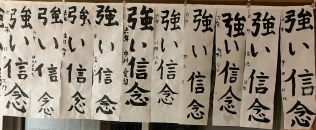 強い信念
強い信念
強い信念
強い信念
強い信念
強い信念
強い信念
強い信念
強い信念
強い信念